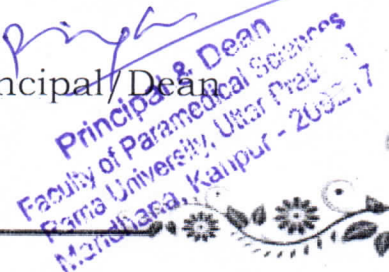 ncipal/Dean
Principal & Dean
Faculty of Paramedical Sciences
Rama University, Uttar Pradesh
Mandhana, Kanpur - 209217